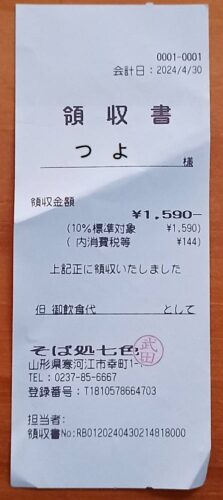 0001-0001
会計日：2024/4/30
領収書
つよ 様
領収金額
¥1,590-
(10%標準対象 ¥1,590)
( 内消費税等 ¥144)
上記正に領収いたしました
但 御飲食代 として
そば処七色
武田
山形県寒河江市幸町1-
TEL：0237-85-6667
登録番号：T1810578664703
担当者:
領収書No:RB0120240430214818000